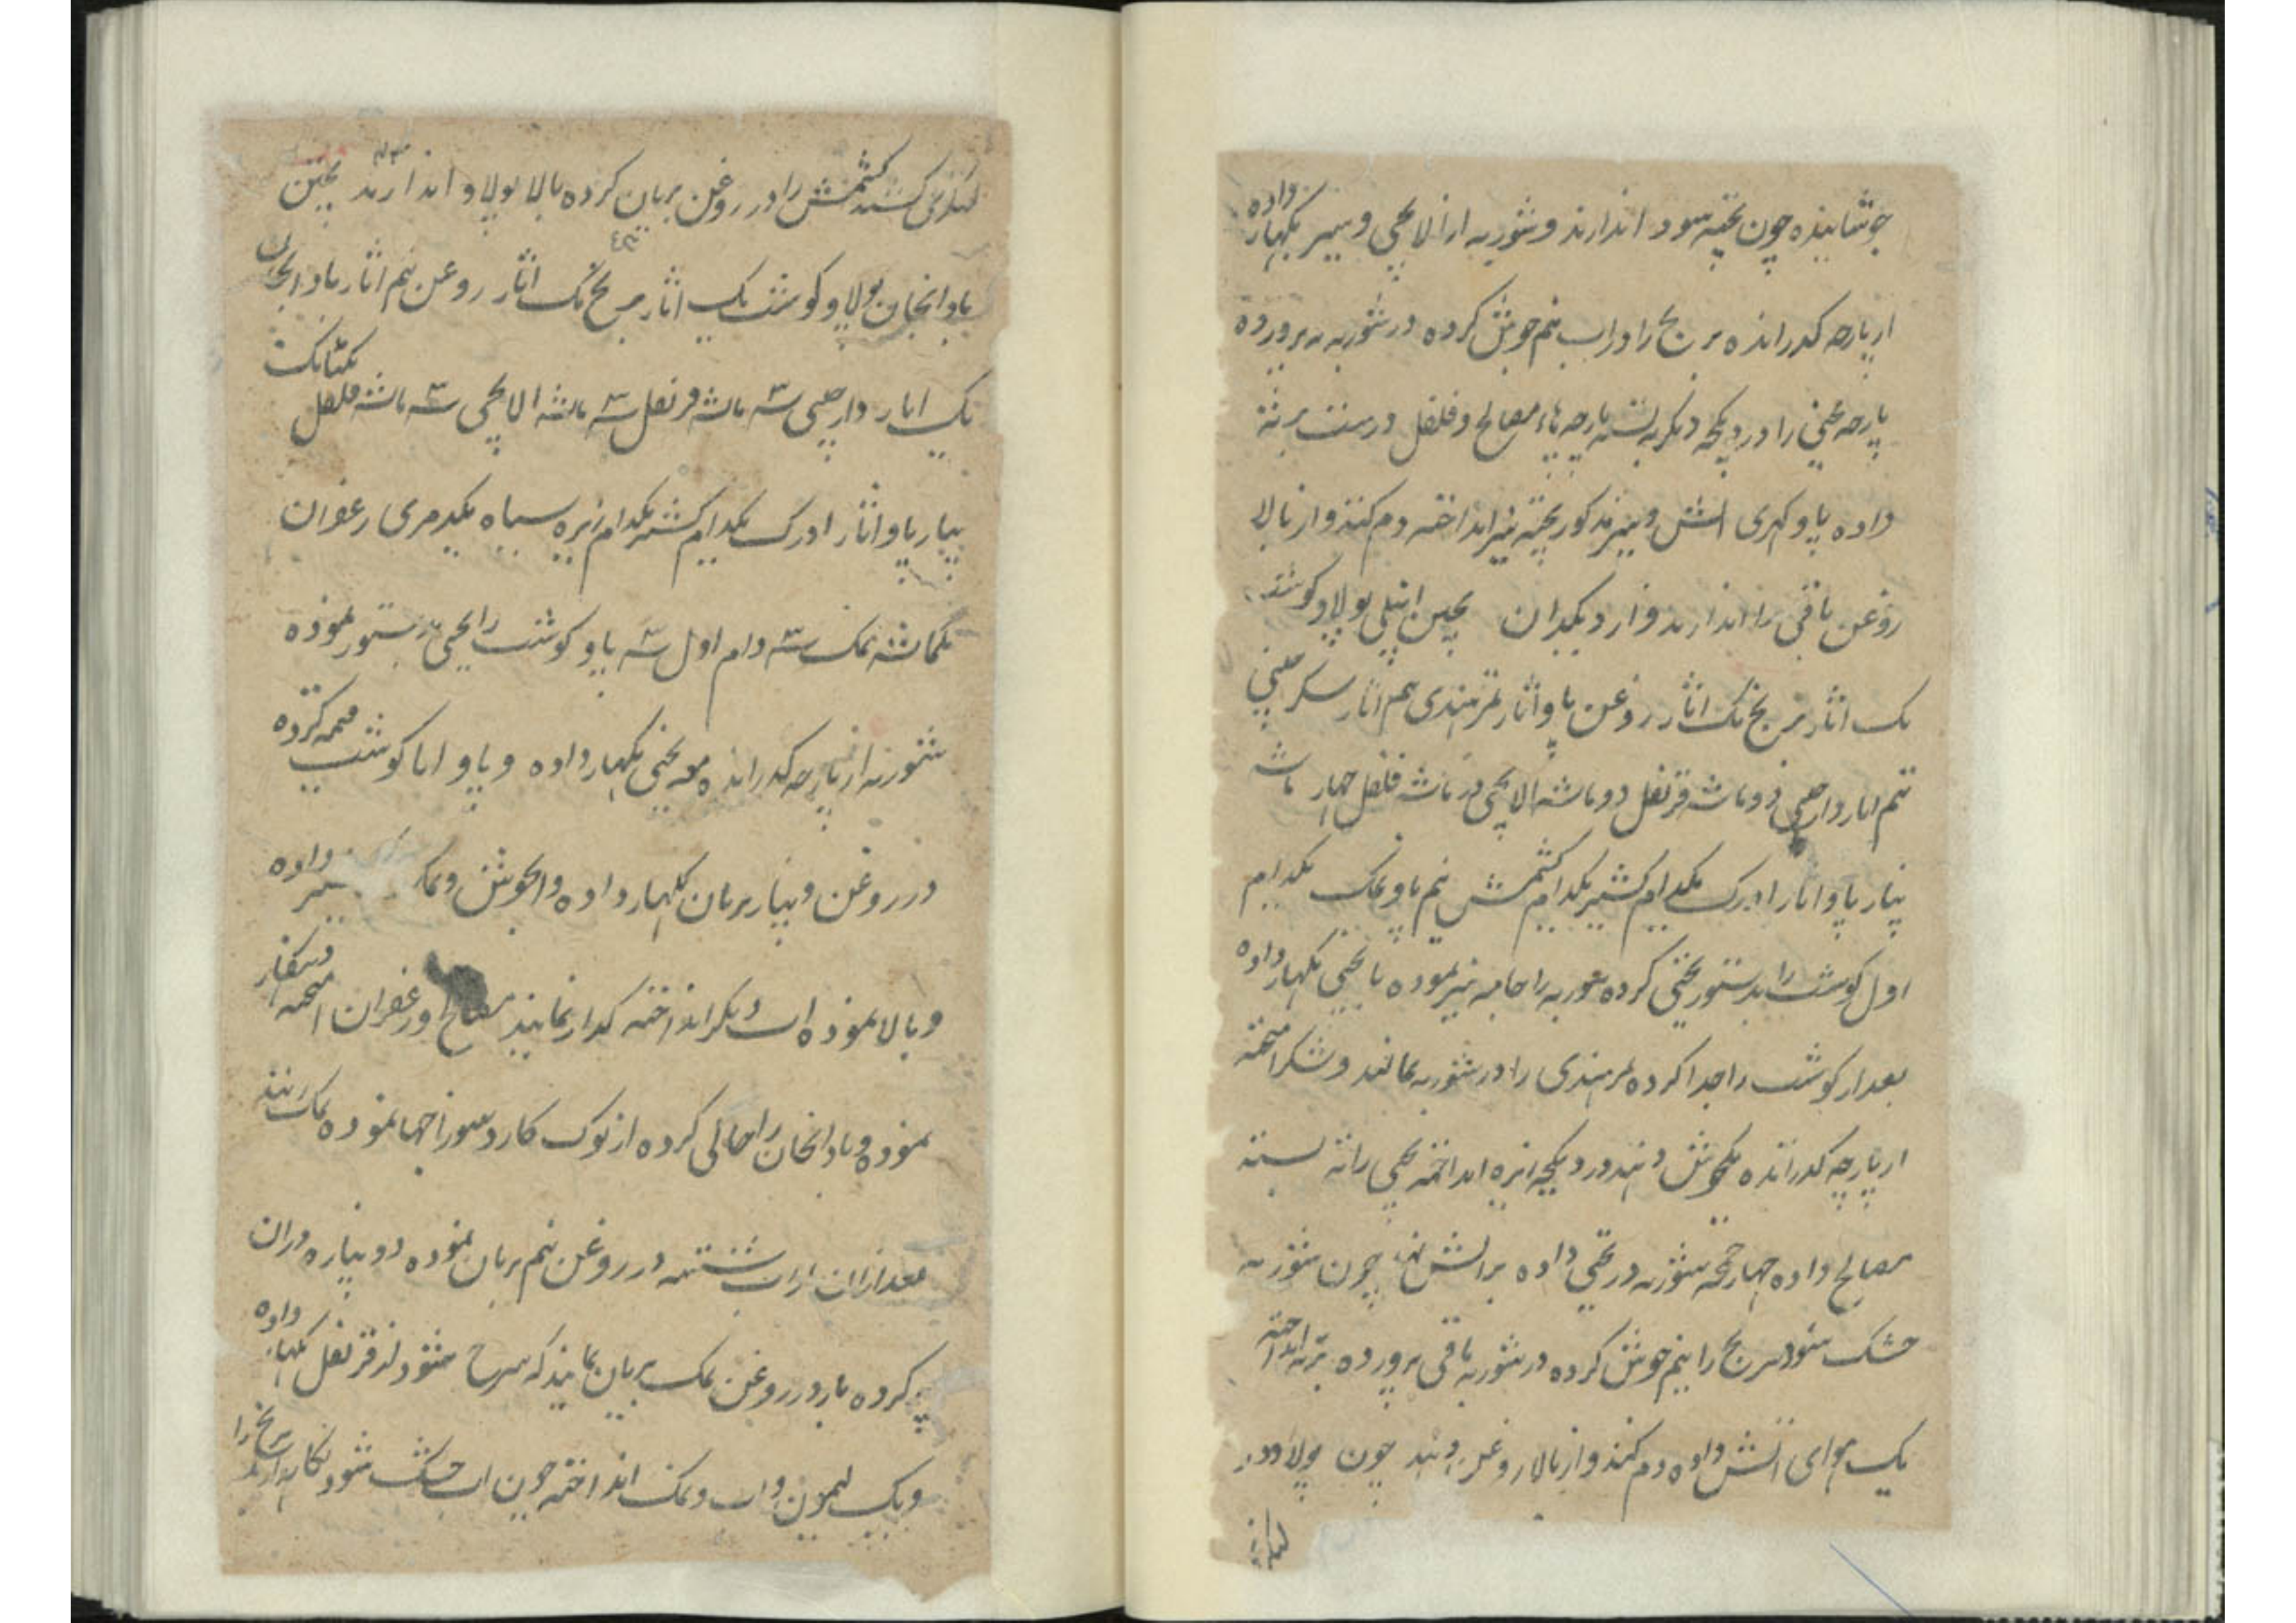 جوشانیده چون پخته شود اندازند و شوربه را از الاچی و سیر بکهار داده
از پارچه کدرانده برنج را در اب نیم جوش کرده در شوربه پرورده
پارچه یخنی را در دیکچه دیکر ته بسته پارچه هاء مصالح و فلفل درست برنه
داده پاو کهری اتش و پنیر مذکور پخته نیز انداخته دم کنند و از بالا
روغن باقی را اندازند و از دیکدان پختن انبلی پولاو کوشت
یک اثار برنج یک اثار روغن پاو اثار تمرهندی نیم اثار شکر چینی
نیم اثار دارچینی دو ماشه قرنفل دو ماشه الاچی دو ماشه فلفل چهار ماشه
پیاز پاو اثار ادرک یکدام کشنیز یکدام کشمش نیم پاو نمک یکدام
اول کوشت را بدستور یخنی کرده شوربه را نموده با یخنی بکهار داده
بعد از کوشت را جدا کرده تمرهندی را در شوربه بمانند و شکر امیخته
از پارچه کدرانده یکجوش دهند و در دیکچه زیره انداخته یخنی را ته بسته
مصالح داده چهار حچه شوربه در یخنی داده بر اتش نهند چون شوربه
خشک شود برنج را نیم جوش کرده در شوربه باقی پرورده برته انداخته
یک هوای اتش داده دم کنند و از بالا روغن دهند چون پولاو در
لنکری
لنکری کشند کشمش را در روغن بریان کرده بالا پولاو اندازند پختن
بادانجان پولاو کوشت یک اثار برنج یک اثار روغن نیم اثار بادانجان
یک اثار دارچینی سه ماشه قرنفل سه ماشه الاچی سه ماشه فلفل یکتانک
پیاز پاو اثار ادرک یکدام کشنیز یکدام زیره سیاه یکدمری زعفران
یکماشه نمک سه دام اول سه پاو کوشت را یخنی بدستور نموده
شوربه از پارچه کدرانده معه یخنی بکهار داده و پاو اثار کوشت قیمه کرده
در روغن و پیاز بریان بکهار داده و ابجوش و نمک داده
و بالا نموده اب دیکر انداخته کداز نمایند مصالح و زعفران امیخته
نموده و بادانجان را خالی کرده از نوک کارد سوراخها نموده نمک زنند
بعد ازان از اب شسته در روغن نیم بریان نموده دوپیازه دران
پر کرده باز در روغن نمک بریان نمایند که سرخ شود از قرنفل بکهار داده
و یک لیمون و اب و نمک انداخته چون اب خشک شود نکاه دارند برنج را